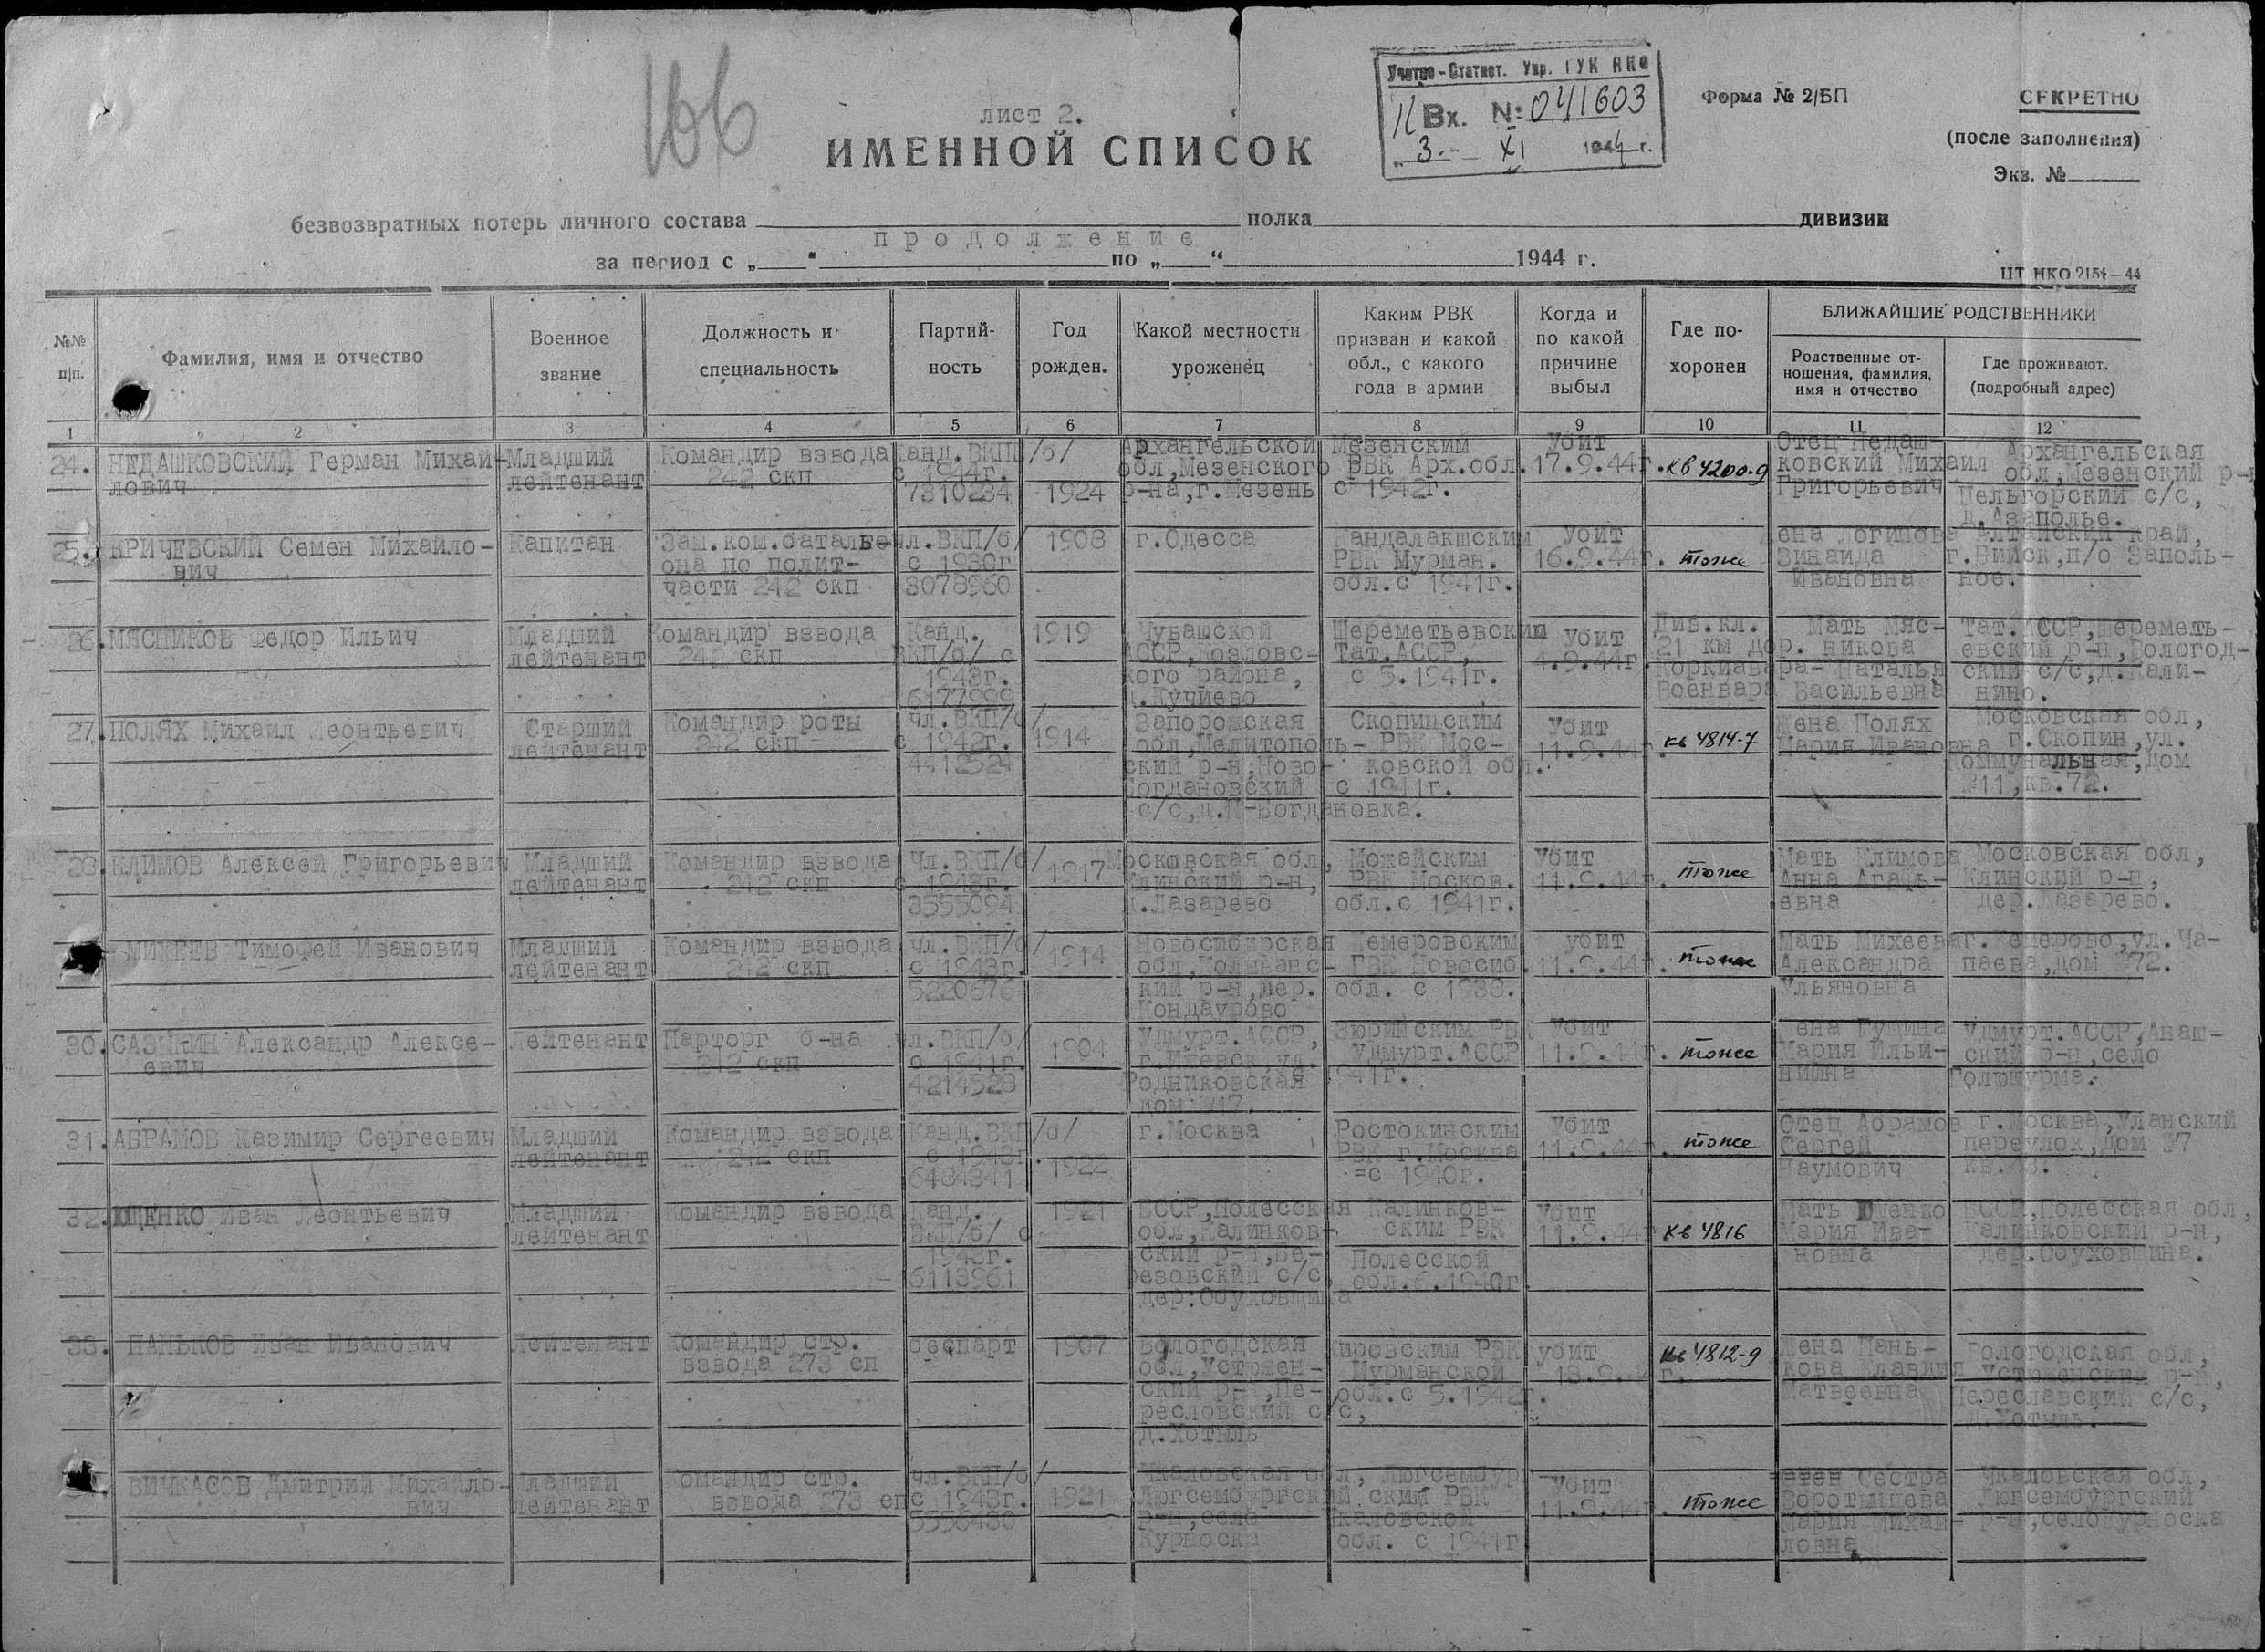 166
Учетно-Статист. Упр. ГУК НКО
Вх. №: 041603
„3" XI 1944 г.
Форма № 2/БП
СЕКРЕТНО
(после заполнения)
Экз. №
лист 2.
ИМЕННОЙ СПИСОК
безвозвратных потерь личного состава полка дивизии
продолжение
за период с „ " по „ " 1944 г.
ЦТ НКО 2151-44
№№ п|п.
Фамилия, имя и отчество
Военное звание
Должность и специальность
Партий-
ность
Год рожден.
Какой местности уроженец
Каким РВК
призван и какой
обл., с какого
года в армии
Когда и
по какой
причине
выбыл
Где по-
хоронен
БЛИЖАЙШИЕ РОДСТВЕННИКИ
Родственные от-
ношения, фамилия,
имя и отчество
Где проживают.
(подробный адрес)
1 2 3 4 5 6 7 8 9 10 11 12
24. НЕДАШКОВСКИЙ Герман Михай-
лович
Младший
лейтенант
Командир взвода
242 скп
Канд.ВКП/б/
с 1944г.
7310234
1924
Архангельской
обл,Мезенского
р-на,г.Мезень
Мезенским
РВК Арх.обл.
с 1942г.
Убит
17.9.44г.
кв 4200-9
Отец Недаш-
ковский Михаил
Григорьевич
Архангельская
обл,Мезенский р-н
Цельгорский с/с,
д.Азаполье.
25. КРИЧЕВСКИЙ Семен Михайло-
вич
Капитан
Зам.ком.баталь-
она по полит-
части 242 скп
чл.ВКП/б/
с 1930г
3078960
1908
г.Одесса
Кандалакшским
РВК Мурман.
обл.с 1941г.
Убит
16.9.44г.
тоже
Жена Логинова
Зинаида
Ивановна
Алтайский край,
г.Бийск,п/о Заполь-
ное.
26. МЯСНИКОВ Федор Ильич
Младший
лейтенант
Командир взвода
242 скп
Канд.
ВКП/б/ с
1943г.
6177999
1919
Чувашской
АССР,Козловс-
кого района,
д.Кучиево
Шереметьевским
Тат.АССР,
с 5.1941г.
Убит
4.9.44г.
Див.кл.
21 км дор.
Коркиавара-
Военвара
Мать Мяс-
никова
Наталья
Васильевна
Тат.АССР,Шереметь-
евский р-н,Вологод-
ский с/с,д.Кали-
нино.
27. ПОЛЯХ Михаил Леонтьевич
Старший
лейтенант
Командир роты
242 скп
чл.ВКП/б/
с 1942г.
4412524
1914
Запорожская
обл,Мелитополь-
ский р-н,Ново-
Богдановский
с/с,д.Н-Богдановка.
Скопинским
РВК Мос-
ковской обл.
с 1941г.
Убит
11.9.44г.
кв 4814-7
Жена Полях
Мария Ивановна
Московская обл,
г.Скопин,ул.
Коммунальная,дом
№11,кв.72.
28. КЛИМОВ Алексей Григорьевич
Младший
лейтенант
Командир взвода
242 скп
Чл.ВКП/б/
с 1943г.
3555094
1917
Московская обл,
Клинский р-н,
д.Лазарево
Можайским
РВК Москов.
обл.с 1941г.
Убит
11.9.44г.
тоже
Мать Климова
Анна Агафь-
евна
Московская обл,
Клинский р-н,
дер.Лазарево.
МИХЕЕВ Тимофей Иванович
Младший
лейтенант
Командир взвода
242 скп
чл.ВКП/б/
с 1943г.
5220676
1914
Новосибирская
обл,Колыванс-
кий р-н,дер.
Кондаурово
Кемеровским
ГВК Новосиб.
обл. с 1938.
убит
11.9.44г.
тоже
Мать Михеева
Александра
Ульяновна
г.Кемерово,ул.Ча-
паева,дом №72.
30. САЗЫКИН Александр Алексе-
евич
Лейтенант
Парторг б-на
242 скп
чл.ВКП/б/
с 1941г.
4214528
1904
Удмурт.АССР,
г.Ижевск,ул.
Родниковская
дом №17.
Зюринским РВК
Удмурт.АССР
1941г.
Убит
11.9.44г.
тоже
Жена Гущина
Мария Ильи-
нишна
Удмурт.АССР,Анаш-
ский р-н,село
Голюшурма.
31. АБРАМОВ Казимир Сергеевич
Младший
лейтенант
Командир взвода
242 скп
Канд.ВКП/б/
с 1943г.
6484341
1922
г.Москва
Ростокинским
РВК г.Москва
=с 1940г.
Убит
11.9.44г.
тоже
Отец Абрамов
Сергей
Наумович
г.Москва,Уланский
переулок,дом №7
кв.43.
32. ЮЩЕНКО Иван Леонтьевич
Младший
лейтенант
Командир взвода
Канд.
ВКП/б/ с
1943г.
6113961
1921
БССР,Полесская
обл,Калинков-
ский р-н,Бе-
резовский с/с,
дер.Обуховщина
Калинков-
ским РВК
Полесской
обл.6.1940г.
Убит
11.9.44г.
кв 4816
Мать Ющенко
Мария Ива-
новна
БССР,Полесская обл,
Калинковский р-н,
дер.Обуховщина.
33. ПАНЬКОВ Иван Иванович
Лейтенант
Командир стр.
взвода 273 сп
беспарт
1907
Вологодская
обл,Устюжен-
ский р-н,Пе-
ресловский с/с,
д.Хотыль
Кировским РВК
Мурманской
обл.с 5.1942г.
убит
кв 4812-9
Жена Пань-
кова Клавдия
Матвеевна
Вологодская обл,
Устюженский р-н,
Переславский с/с,
д.Хотыль.
ВИЧКАСОВ Дмитрий Михайло-
вич
Младший
лейтенант
Командир стр.
взвода 273 сп
чл.ВКП/б/
с 1943г.
5556430
1921
Чкаловская обл,
Люгсембургский
р-н,село
Курноска
Люгсембург-
ский РВК
Чкаловской
обл. с 1941г
Убит
11.9.44г.
тоже
Сестра
Воротынцева
Мария Михай-
ловна
Чкаловская обл,
Люгсембургский
р-н,село Курноска